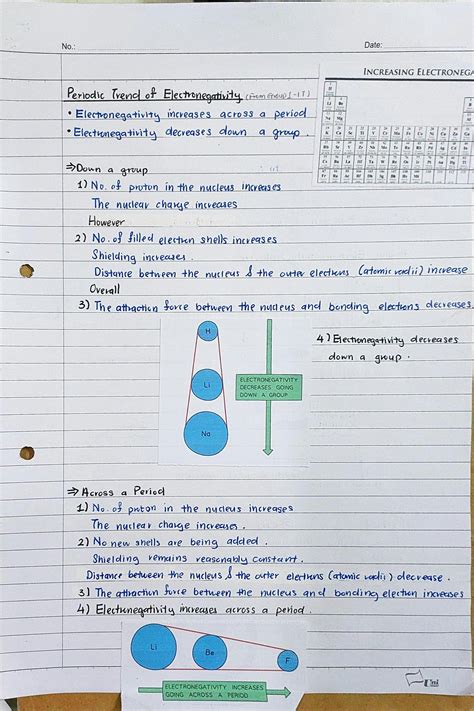 No.:
Date:
INCREASING ELECTRONEGA
Periodic Trend of Electronegativity (From Group 1-17)
• Electronegativity increases across a period
• Electronegativity decreases down a group.
⇒Down a group
1) No. of proton in the nucleus increases
The nuclear charge increases
However
2) No. of filled electron shells increases
Shielding increases.
Distance between the nucleus & the outer electrons (atomic radii) increase
Overall
3) The attraction force between the nucleus and bonding electrons decreases.
4) Electronegativity decreases
down a group.
H
Li
Na
ELECTRONEGATIVITY
DECREASES GOING
DOWN A GROUP
⇒ Across a Period
1) No. of proton in the nucleus increases
The nuclear charge increases.
2) No new shells are being added.
Shielding remains reasonably constant.
Distance between the nucleus & the outer electrons (atomic radii) decrease.
3) The attraction force between the nucleus and bonding electron increases
4) Electronegativity increases across a period.
Li
Be
F
ELECTRONEGATIVITY INCREASES
GOING ACROSS A PERIOD